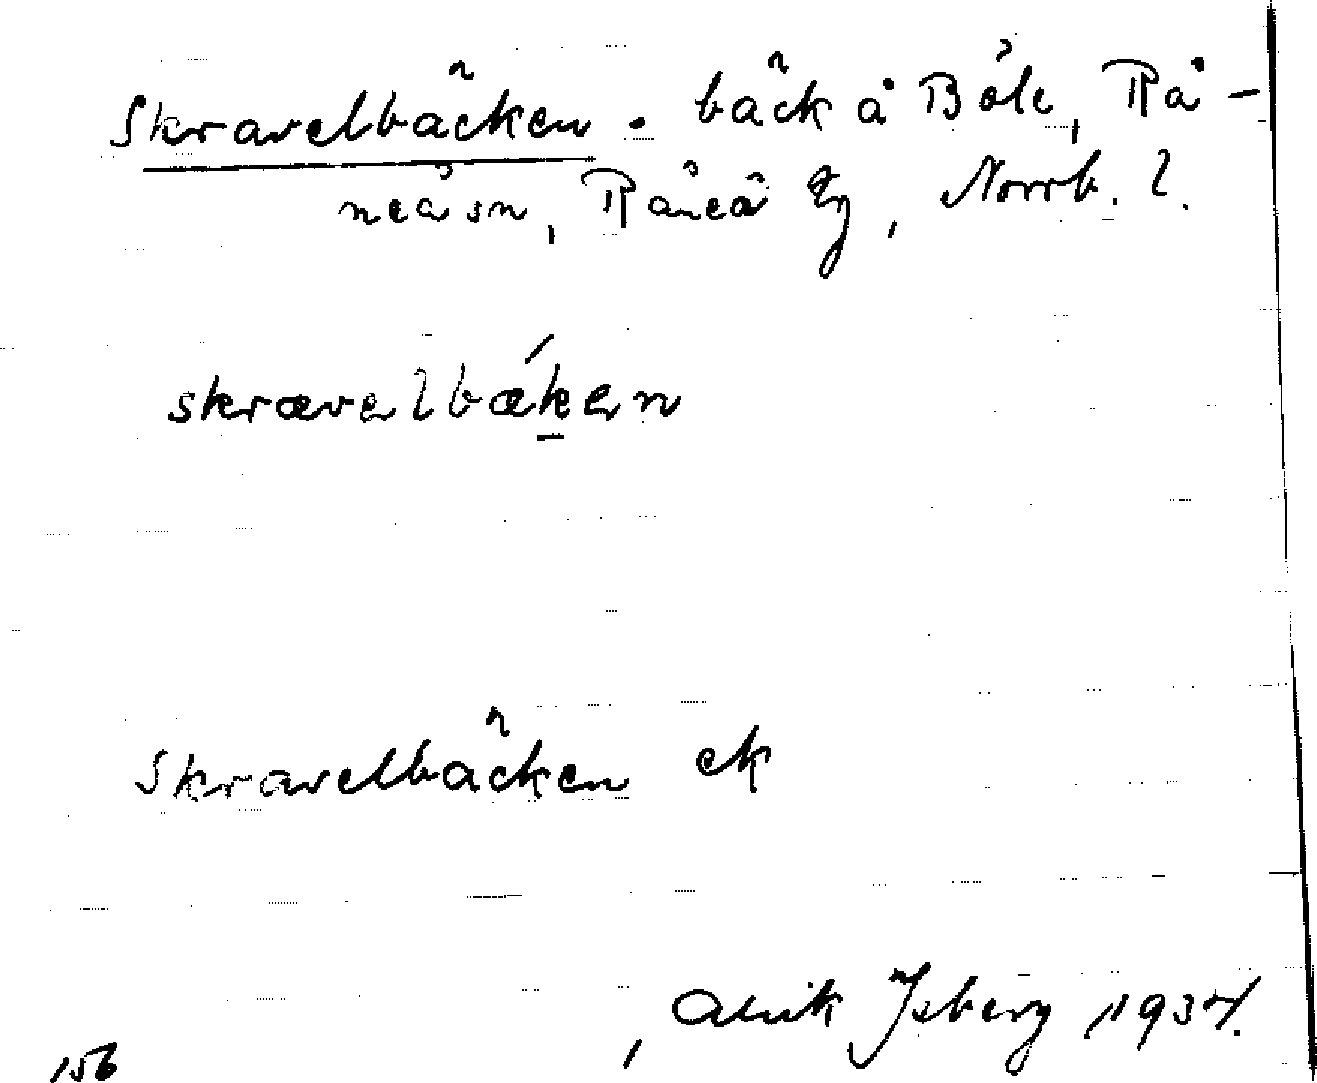 Skravelbäcken. bäck å Böle, Rå-
neå sn, Råneå tg, Norrb. l.
skrævelbæken
Skravelbäcken ek
Alrik Isberg 1934.
156